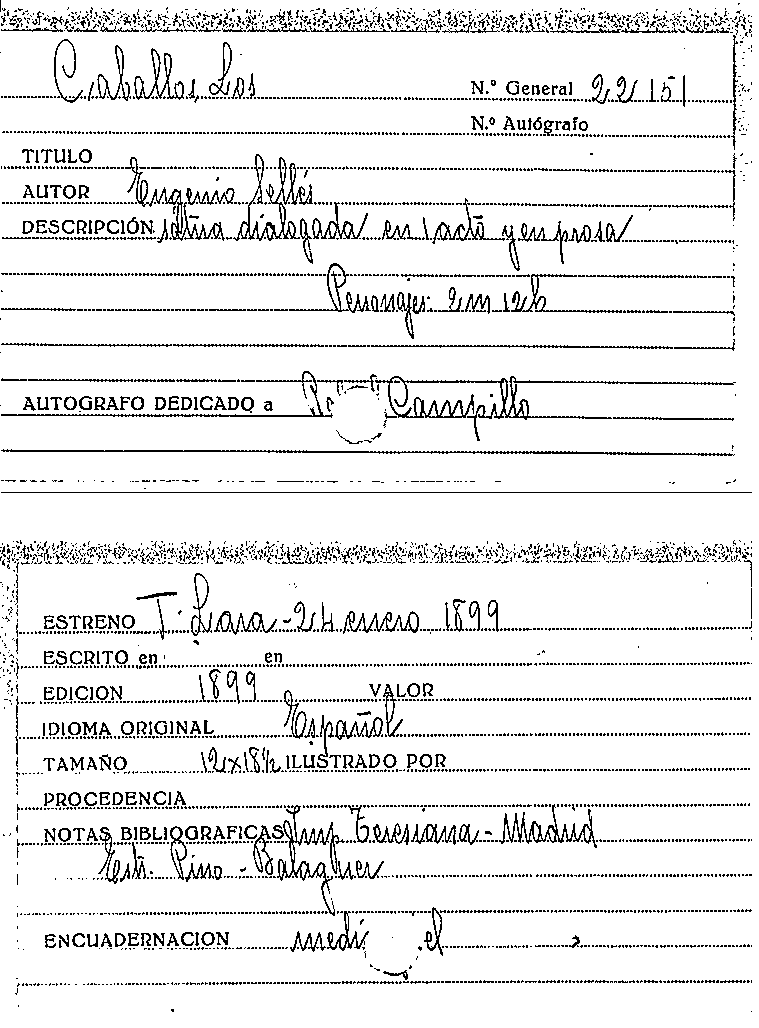 Caballos, Los
N.º General 22151
N.º Autógrafo
TITULO
AUTOR Eugenio Sellés
DESCRIPCIÓN sátira dialogada en 1 acto y en prosa
Personajes: 2m 12h
AUTOGRAFO DEDICADO a Campillo
ESTRENO T. Lara - 24 enero 1899
ESCRITO en en
EDICION 1899 VALOR
IDIOMA ORIGINAL Español
TAMAÑO 12x18½ ILUSTRADO POR
PROCEDENCIA
NOTAS BIBLIOGRAFICAS Imp Teresiana - Madrid
Estr. Pino - Balaguer
ENCUADERNACION